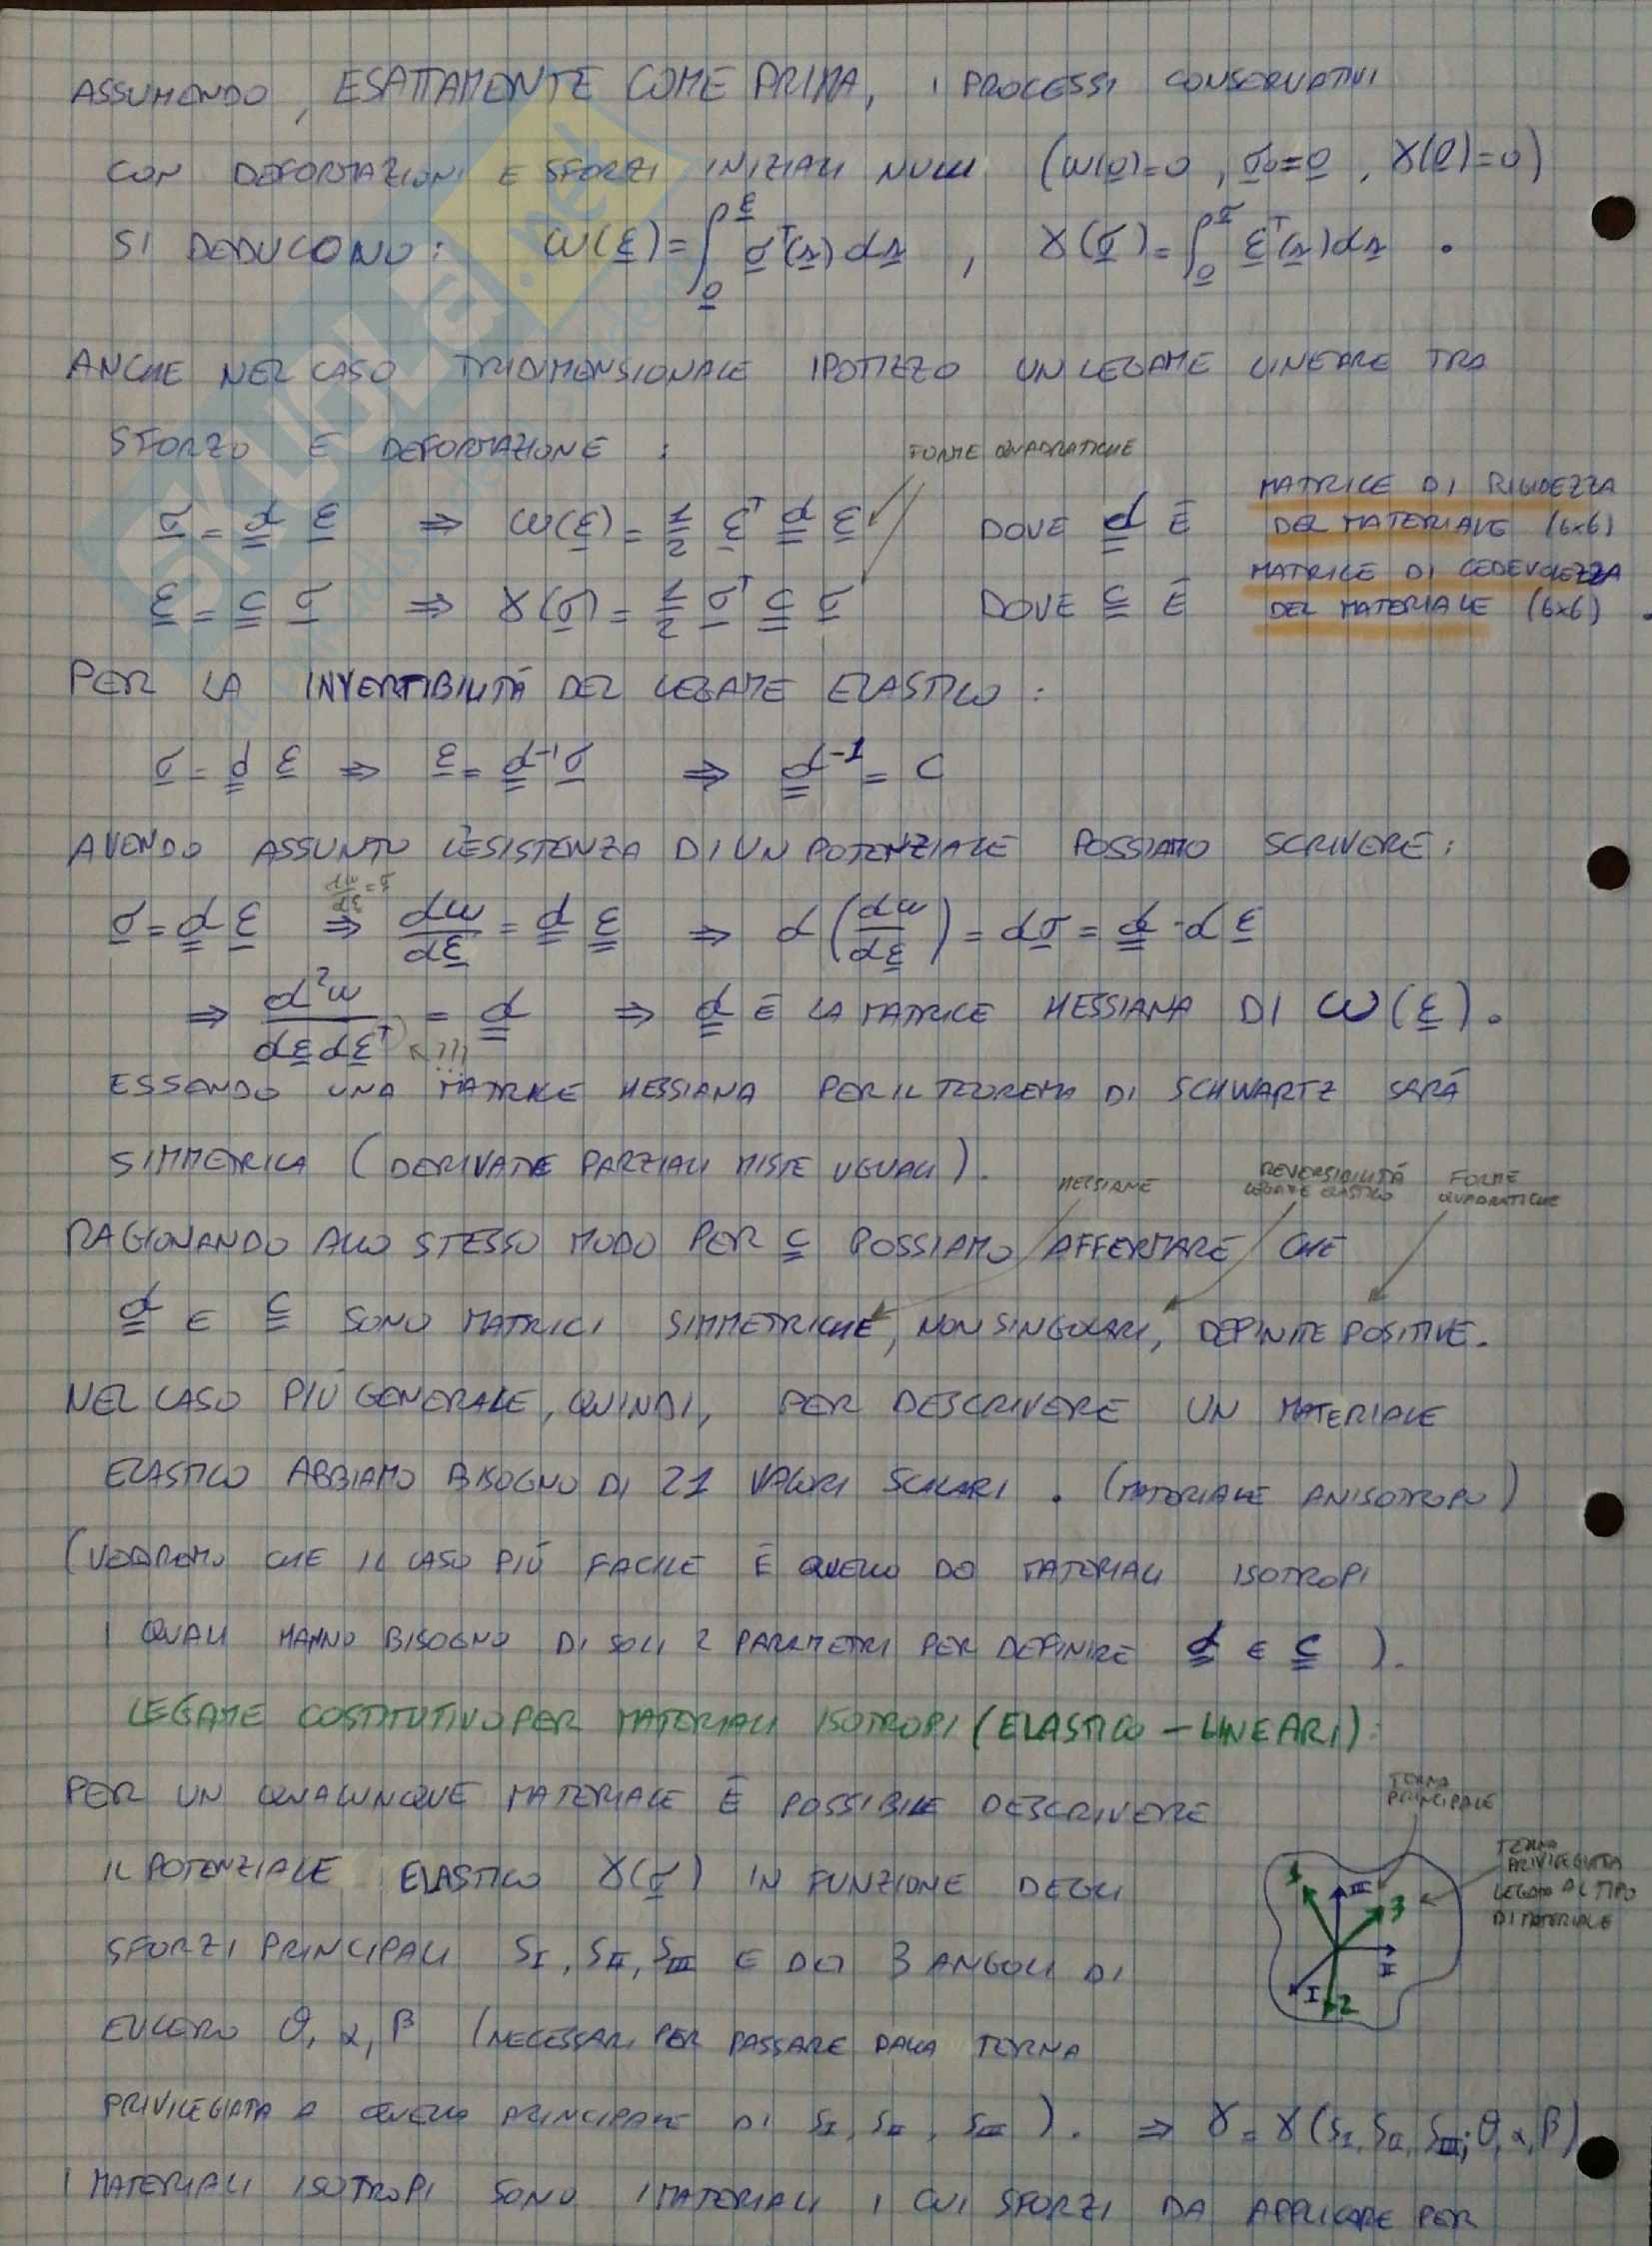 ASSUMENDO, ESATTAMENTE COME PRIMA, I PROCESSI CONSERVATIVI
CON DEFORMAZIONI E SFORZI INIZIALI NULLI (ω(0)=0, σ0=0, γ(0)=0)
SI DEDUCONO: ω(ε)=∫₀^ε σᵀ(s)ds , γ(σ)=∫₀^σ εᵀ(s)ds .
ANCHE NEL CASO TRIDIMENSIONALE IPOTIZZO UN LEGAME LINEARE TRA
SFORZO E DEFORMAZIONE :
FORME QUADRATICHE
σ = d ε ⇒ ω(ε) = 1/2 εᵀ d ε DOVE d È MATRICE DI RIGIDEZZA DEL MATERIALE (6x6)
ε = c σ ⇒ γ(σ) = 1/2 σᵀ c σ DOVE c È MATRICE DI CEDEVOLEZZA DEL MATERIALE (6x6) .
PER LA INVERTIBILITÀ DEL LEGAME ELASTICO :
σ = d ε ⇒ ε = d⁻¹ σ ⇒ d⁻¹ = C
AVENDO ASSUNTO L'ESISTENZA DI UN POTENZIALE POSSIAMO SCRIVERE :
dω/dε = σ
σ = d ε ⇒ dω/dε = d ε ⇒ d(dω/dε) = dσ = d · dε
⇒ d²ω/dεdεᵀ = d ⇒ d È LA MATRICE HESSIANA DI ω(ε).
???
ESSENDO UNA MATRICE HESSIANA PER IL TEOREMA DI SCHWARTZ SARÀ
SIMMETRICA (DERIVATE PARZIALI MISTE UGUALI).
HESSIANE
REVERSIBILITÀ LEGAME ELASTICO
FORME QUADRATICHE
RAGIONANDO ALLO STESSO MODO PER c POSSIAMO AFFERMARE CHE
d E c SONO MATRICI SIMMETRICHE, NON SINGOLARI, DEFINITE POSITIVE.
NEL CASO PIÙ GENERALE, QUINDI, PER DESCRIVERE UN MATERIALE
ELASTICO ABBIAMO BISOGNO DI 21 VALORI SCALARI . (MATERIALE ANISOTROPO)
(VEDREMO CHE IL CASO PIÙ FACILE È QUELLO DEI MATERIALI ISOTROPI
I QUALI HANNO BISOGNO DI SOLI 2 PARAMETRI PER DEFINIRE d E c ).
LEGAME COSTITUTIVO PER MATERIALI ISOTROPI (ELASTICO-LINEARI):
PER UN QUALUNQUE MATERIALE È POSSIBILE DESCRIVERE
TERNA PRINCIPALE
IL POTENZIALE ELASTICO γ(σ) IN FUNZIONE DEGLI
TERNA PRIVILEGIATA LEGATA AL TIPO DI MATERIALE
1 III 3 II I 2
SFORZI PRINCIPALI SI, SII, SIII E DEI 3 ANGOLI DI
EULERO θ, α, β (NECESSARI PER PASSARE DALLA TERNA
PRIVILEGIATA A QUELLA PRINCIPALE DI SI, SII, SIII ). ⇒ γ = γ(SI, SII, SIII; θ, α, β)
I MATERIALI ISOTROPI SONO I MATERIALI I CUI SFORZI DA APPLICARE PER
SKUOLA.NET